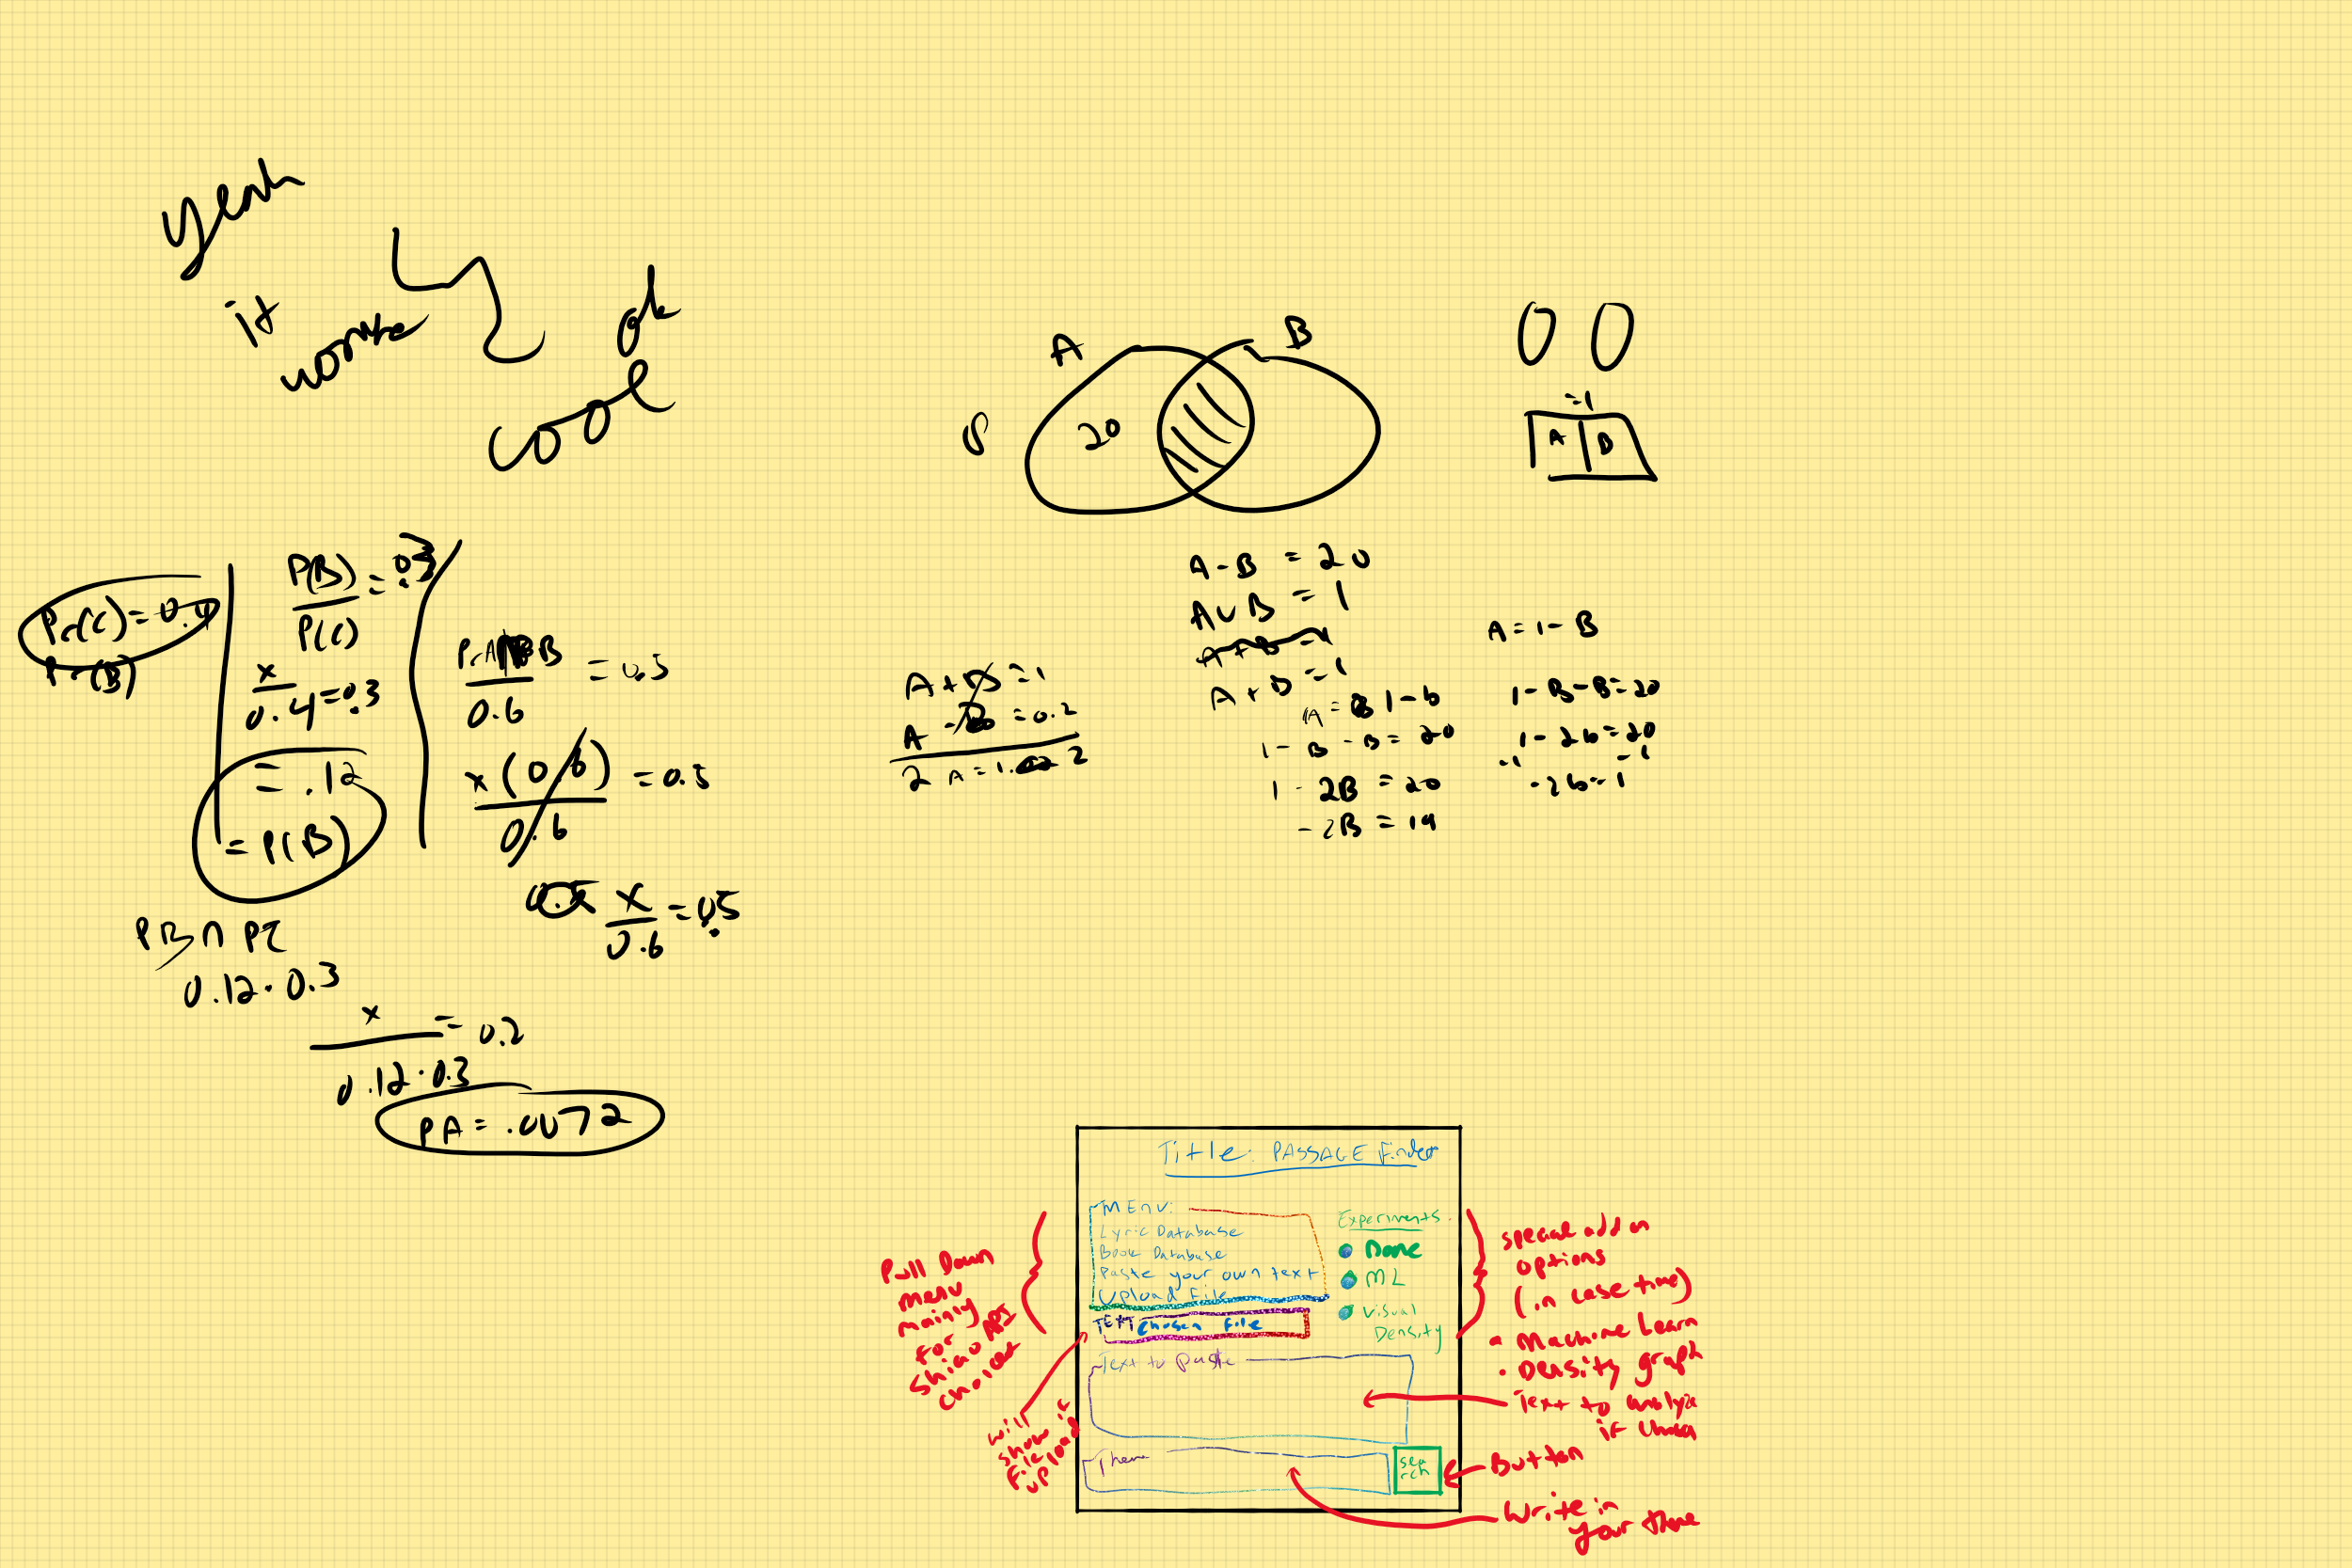 yeah
it
works
ok
cool
A
B
S
20
0 0
=1
A D
Pr(C)=0.4
Pr(B)
P(B)
P(C)
=0.3
x
0.4 =0.3
= .12
= P(B)
0.6
= 0.5
x(0.6)
0.6
= 0.5
x
0.6
= 0.5
0.12 · 0.3
x
0.12 · 0.3
= 0.2
PA = .0072
A - B = 20
A∪B = 1
A + B = 1
A + B = 1
A = 1 - b
1 - B - B = 20
1 - 2B = 20
-2B = 19
A = 1 - B
1 - B - B = 20
1 - 2b = 20
-1 -1
A + B = 1
A - B = 0.2
Title: PASSAGE Finder
MENU:
Lyric Database
Book Database
Paste your own text
Upload File
TEXT Chosen File
Text to paste
Theme
sea
rch
Experiments
None
ML
Visual
Density
Pull Down
menu
mainly
for
API
choices
will
show if
file
upload
special add on
options
(in case time)
• Machine Learn
• Density graph
Text to analyze
if chosen
Button
Write in
your theme